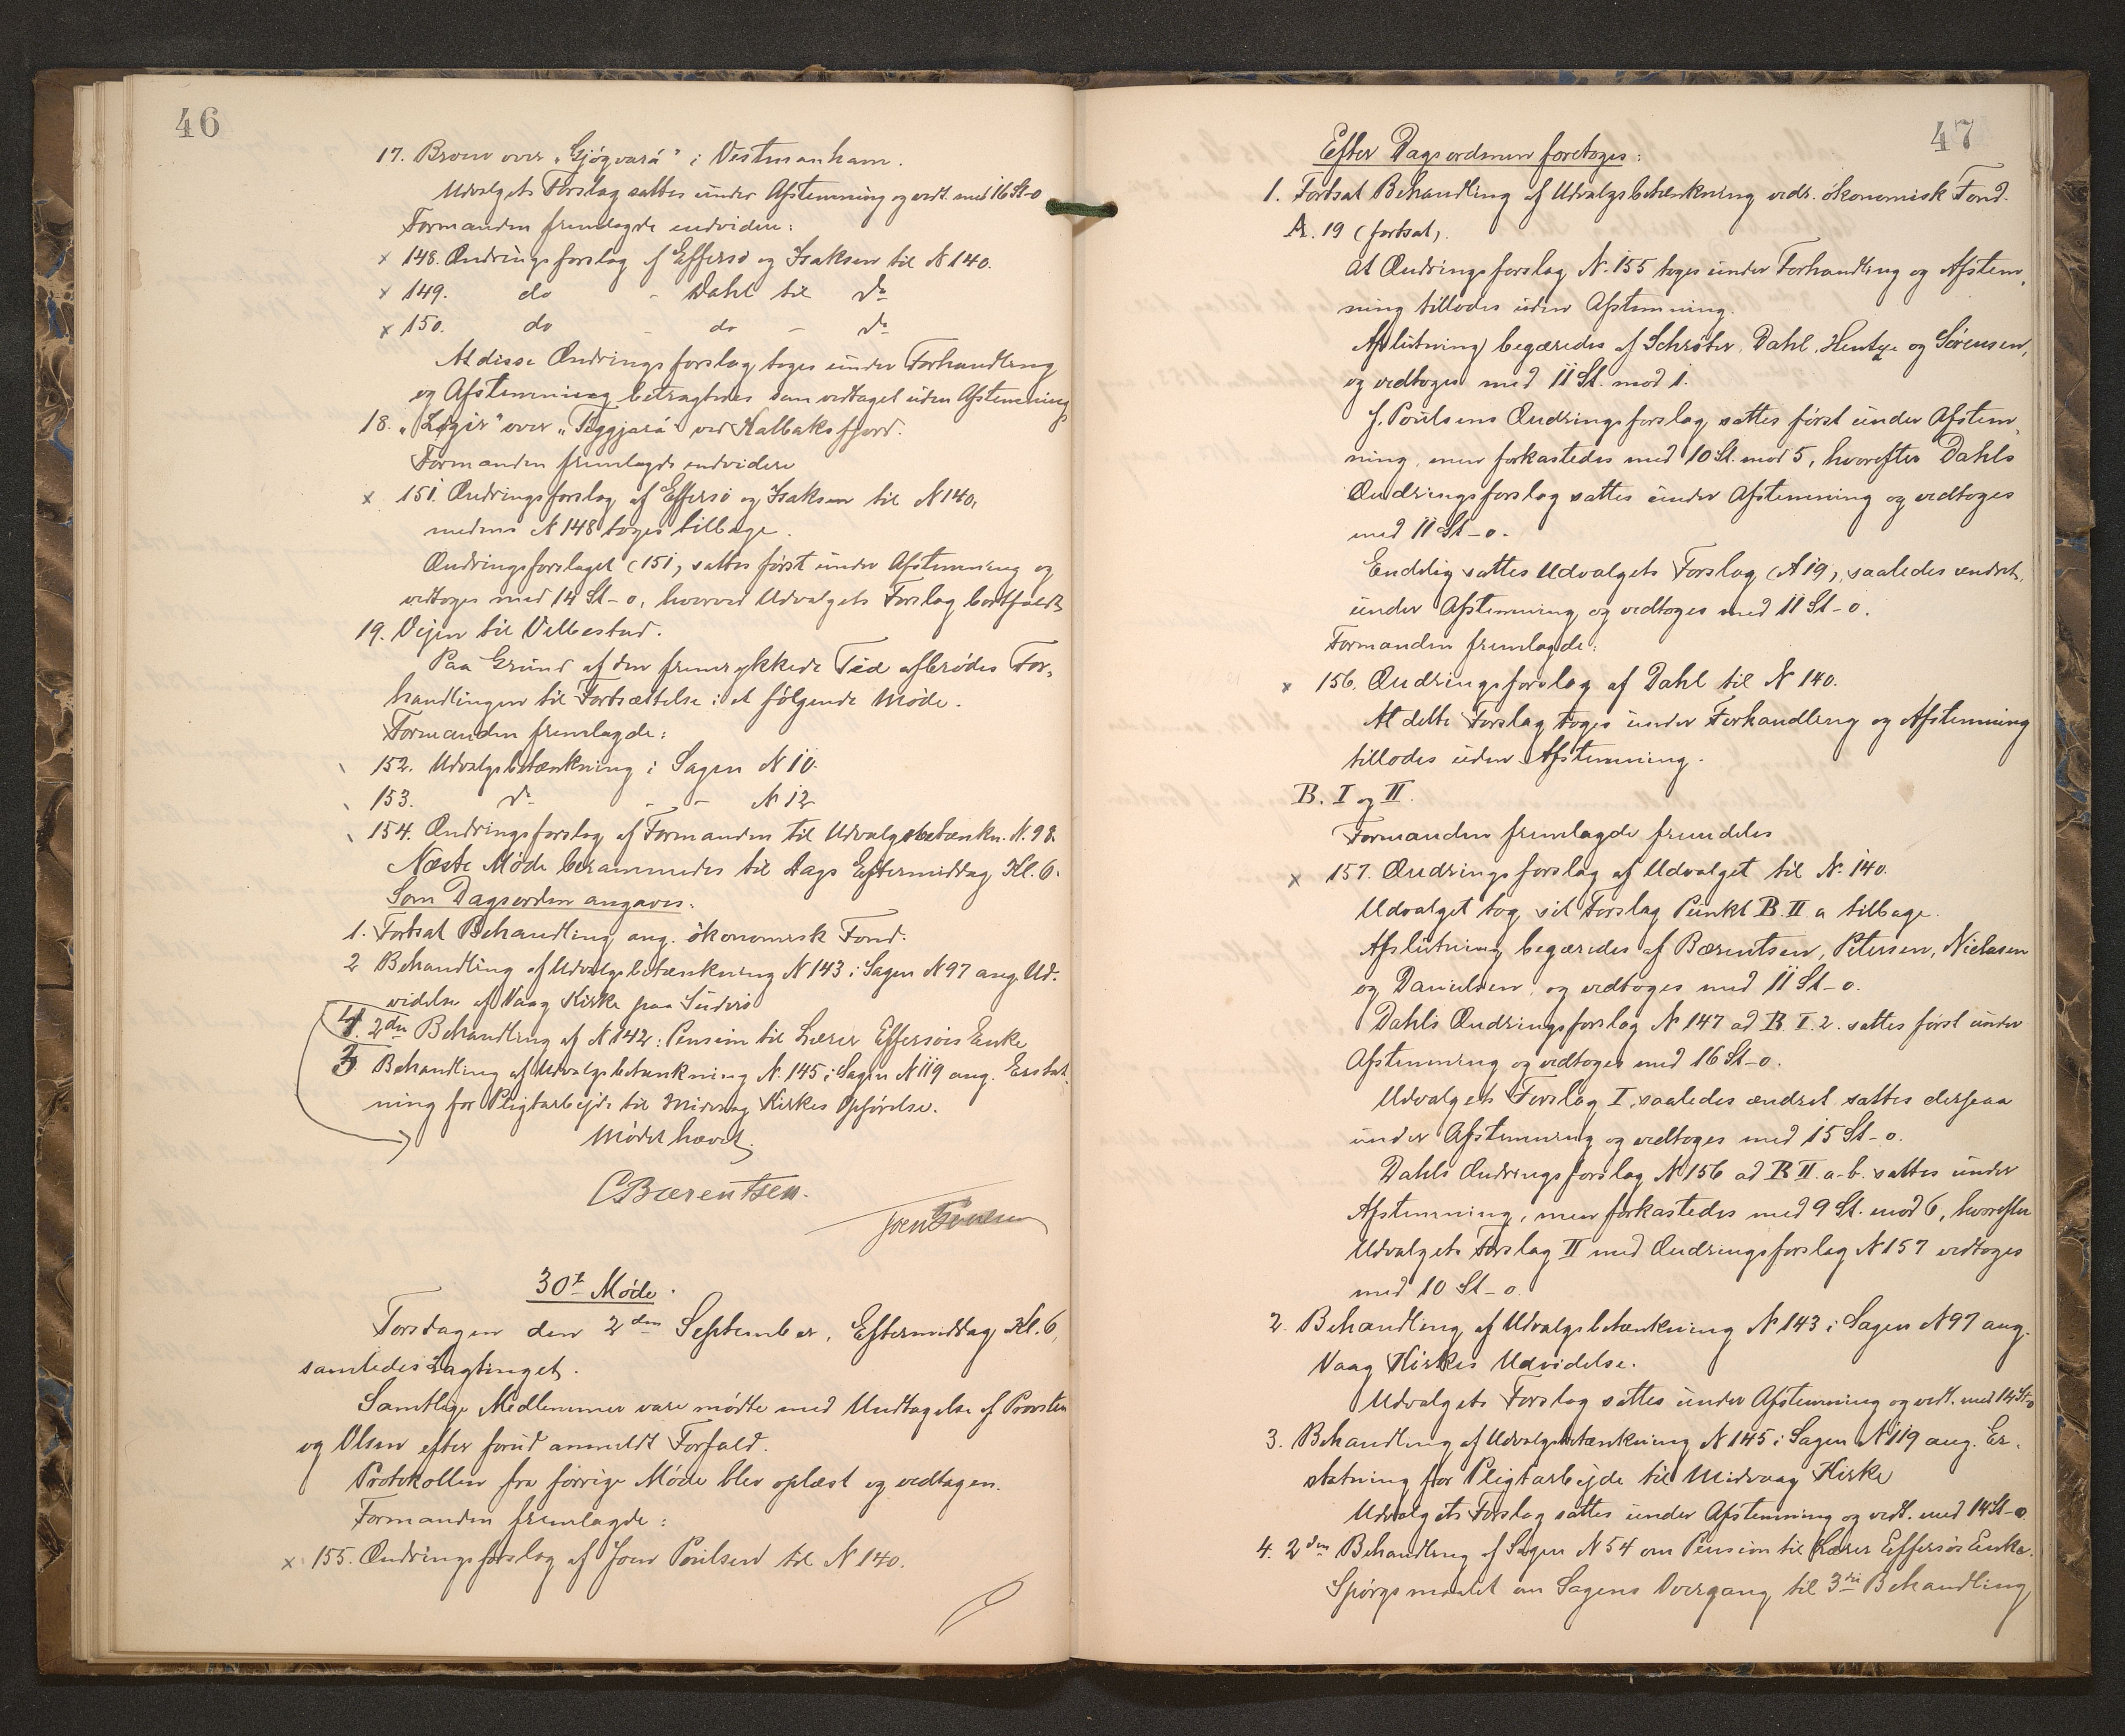 46
17. Broen over „Gjógvará" i Vestmanham.
Udvalgets Forslag sattes under Afstemning og vedt. med 16 St-0
Formanden fremlagde endvidere:
x 148. Ændringsforslag af Effersø og Isaksen til N 140.
x 149. do - Dahl til do
x 150. do - do - do
At disse Ændringsforslag toges under Forhandling
og Afstemning betragtedes som vedtaget uden Afstemning
18. „Lögir" over „Tiggjará" ved Kalbaksfjord.
Formanden fremlagde endvidere
x 151. Ændringsforslag af Effersø og Isaksen til N 140,
medens N 148 toges tilbage.
Ændringsforslaget (151) sattes först under Afstemning og
vedtoges med 14 St-0, hvorved Udvalgets Forslag bortfaldt
19. Vejen til Velbestad.
Paa Grund af den fremrykkede Tid afbrødes For-
handlingen til Fortsættelse i et følgende Møde.
Formanden fremlagde:
152. Udvalgsbetænkning i Sagen N 10.
153. do - - N 12
154. Ændringsforslag af Formanden til Udvalgsbetænkn. N. 98.
Næste Møde berammedes til Dags Eftermiddag Kl. 6.
Som Dagsorden angaves:
1. Fortsat Behandling ang. økonomisk Fond.
2 Behandling af Udvalgsbetænkning N 143 i Sagen N 97 ang. Ud-
videlse af Vaag Kirke paa Suderø
4. 2den Behandling af N 142: Pension til Lærer Effersøes Enke
3 Behandling af Udvalgsbetænkning N. 145 i Sagen N 119 ang. Erstat-
ning for Pligtarbejde til Midvaag Kirkes Opførelse.
Mødet hævet.
CBærentsen.
Joen Poulsen
30te Møde.
Torsdagen den 2den September, Eftermiddag Kl. 6,
samledes Lagtinget.
Samtlige Medlemmer vare mødte med Undtagelse af Provsten
og Olsen efter forud anmeldt Forfald.
Protokollen fra forrige Møde blev oplæst og vedtagen.
Formanden fremlagde:
x 155. Ændringsforslag af Joen Poulsen til N 140.
47
Efter Dagsordenen foretoges:
1. Fortsat Behandling af Udvalgsbetænkning vedr. økonomisk Fond.
A. 19 (fortsat).
At Ændringsforslag N. 155 toges under Forhandling og Afstem-
ning tillodes uden Afstemning.
Afslutning begæredes af Schrøter, Dahl, Hentze og Sørensen,
og vedtoges med 11 St. mod 1.
J. Poulsens Ændringsforslag sattes først under Afstem-
ning, men forkastedes med 10 St. mod 5, hvorefter Dahls
Ændringsforslag sattes under Afstemning og vedtoges
med 11 St-0.
Endelig sattes Udvalgets Forslag (A 19), saaledes ændret,
under Afstemning og vedtoges med 11 St-0.
Formanden fremlagde:
x 156. Ændringsforslag af Dahl til N 140.
At dette Forslag toges under Forhandling og Afstemning
tillodes uden Afstemning.
B. I og II.
Formanden fremlagde fremdeles
x 157. Ændringsforslag af Udvalget til N. 140.
Udvalget tog sit Forslag Punkt B II a tilbage.
Afslutning begæredes af Bærentsen, Petersen, Niclasen
og Danielsen, og vedtoges med 11 St-0.
Dahls Ændringsforslag N 147 ad B. I. 2. sattes først under
Afstemning og vedtoges med 16 St-0.
Udvalgets Forslag I, saaledes ændret sattes derpaa
under Afstemning og vedtoges med 15 St-0.
Dahls Ændringsforslag N 156 ad B II. a-b. sattes under
Afstemning, men forkastedes med 9 St. mod 6, hvorefter
Udvalgets Forslag II med Ændringsforslag N 157 vedtoges
med 10 St-0.
2. Behandling af Udvalgsbetænkning N 143 i Sagen N 97 ang.
Vaag Kirkes Udvidelse.
Udvalgets Forslag sattes under Afstemning og vedt. med 14 St-0
3. Behandling af Udvalgsbetænkning N 145 i Sagen N 119 ang. Er-
statning for Pligtarbejde til Midvaag Kirke
Udvalgets Forslag sattes under Afstemning og vedt. med 14 St-0.
4. 2den Behandling af Sagen N 54 om Pension til Lærer Effersøs Enke.
Spørgsmaalet om Sagens Overgang til 3die Behandling